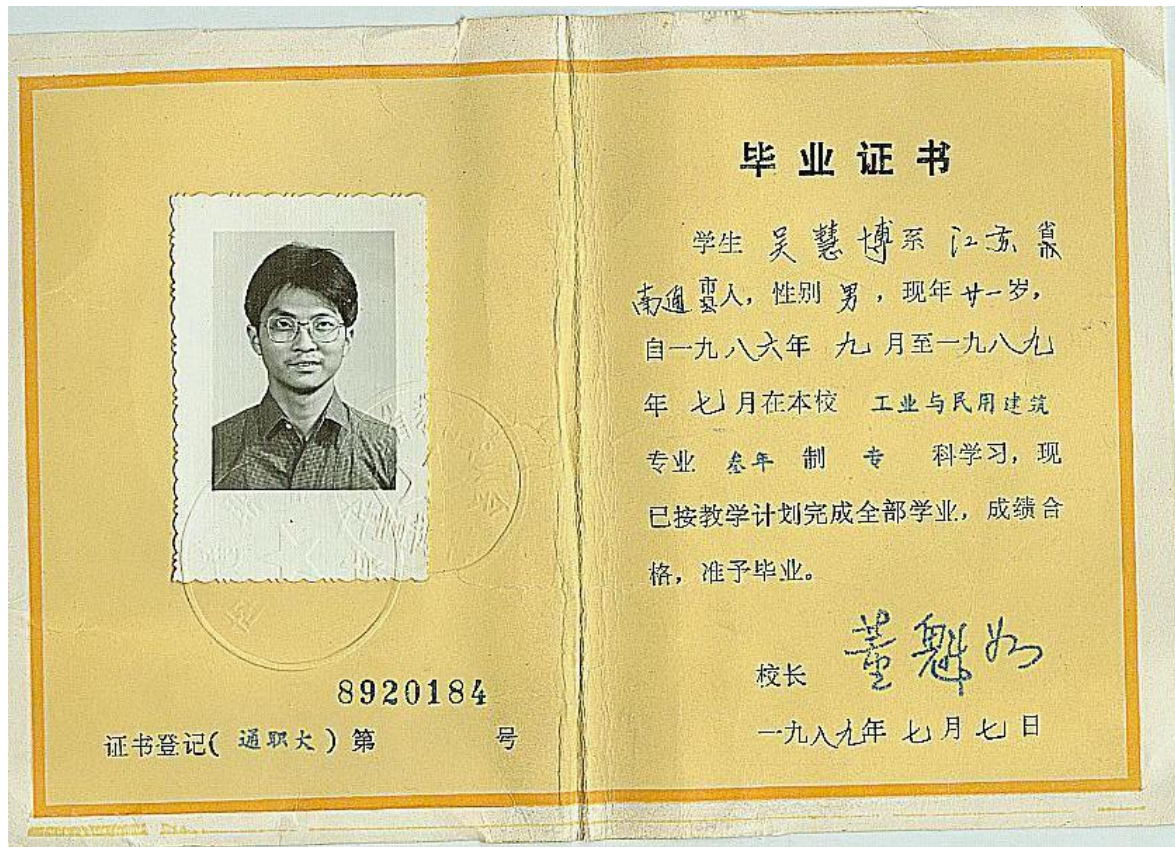 8920184
证书登记(通职大)第 号
毕业证书
学生 吴慧博系 江苏 省市
南通 市县人，性别 男，现年廿一岁，
自一九八六年 九月至一九八九
年 七月在本校 工业与民用建筑
专业 叁年 制 专 科学习，现
已按教学计划完成全部学业，成绩合
格，准予毕业。
校长 董魁如
一九八九年七月七日